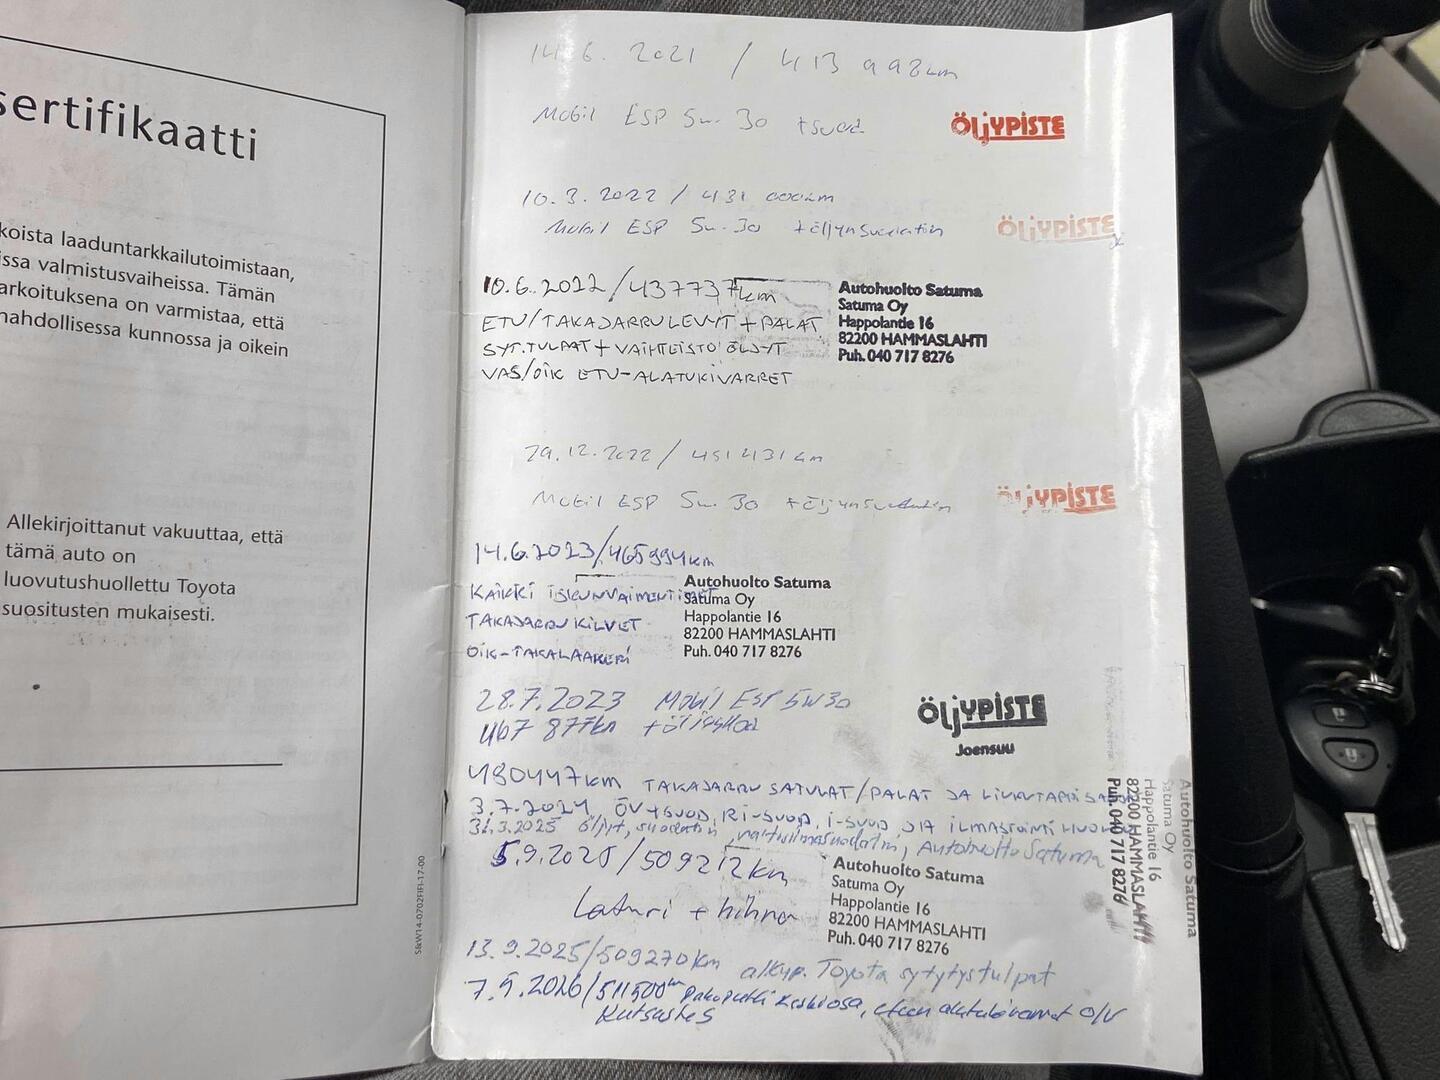 sertifikaatti
koista laaduntarkkailutoimistaan,
issa valmistusvaiheissa. Tämän
arkoituksena on varmistaa, että
nahdollisessa kunnossa ja oikein
Allekirjoittanut vakuuttaa, että
tämä auto on
luovutushuollettu Toyota
suositusten mukaisesti.
S&W14-0702FIFI-17-00
14.6. 2021 / 413 998km
Mobil ESP 5w.30 + suod.
ÖLJYPISTE
10.3.2022 / 431 000km
Mobil ESP 5w.30 + öljynsuodatin
ÖLJYPISTE
10.6.2022/437737km
ETU/TAKAJARRULEVYT + PALAT
SYT.TULPAT + VAIHTEISTOÖLJYT
VAS/OIK ETU-ALATUKIVARRET
Autohuolto Satuma
Satuma Oy
Happolantie 16
82200 HAMMASLAHTI
Puh. 040 717 8276
29.12.2022 / 451 431km
Mobil ESP 5w.30 + öljynsuodatin
ÖLJYPISTE
14.6.2023/465994km
KAIKKI ISKUNVAIMENTIMET
TAKAJARRUKILVET
OIK-TAKALAAKERI
Autohuolto Satuma
Satuma Oy
Happolantie 16
82200 HAMMASLAHTI
Puh. 040 717 8276
28.7.2023 Mobil ESP 5W30
467 877km
ÖLJYPISTE
Joensuu
480447km TAKAJARRU SATULAT/PALAT JA LIUKUTAPPISARJA
3.7.2024 ÖV+SUOD, RI-SUOD, I-SUOD JA ILMASTOINTIHUOLTO
31.3.2025 öljyt, suodatin, raitisilmasuodatin, Autohuolto Satuma
Autohuolto Satuma
Satuma Oy
Happolantie 16
82200 HAMMASLAHTI
Puh. 040 717 8276
5.9.2025/509212km
Laturi + hihna
Autohuolto Satuma
Satuma Oy
Happolantie 16
82200 HAMMASLAHTI
Puh. 040 717 8276
13.9.2025/509270km alkup. Toyota sytytystulpat
7.9.2026/511500km Pakoputki keskiosa, eteen alatukivarret O/V